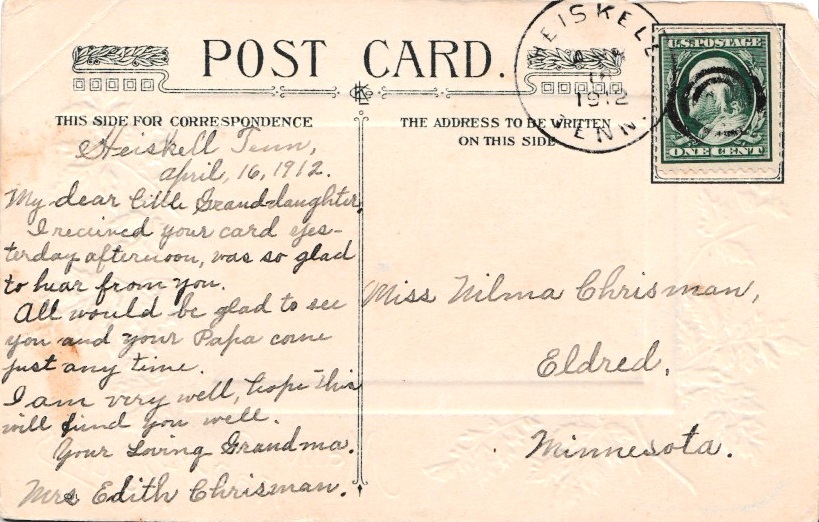 POST CARD.
HEISKELL
1912
TENN.
U.S. POSTAGE
ONE CENT
THIS SIDE FOR CORRESPONDENCE
THE ADDRESS TO BE WRITTEN
ON THIS SIDE
Heiskell Tenn,
April, 16, 1912.
My dear little Grand-daughter,
I recieved your card yes-
terday afternoon, was so glad
to hear from you.
All would be glad to see
you and your Papa come
just any time.
I am very well, hope this
will find you well.
Your Loving Grandma.
Mrs Edith Chrisman.
Miss Wilma Chrisman,
Eldred,
Minnesota.